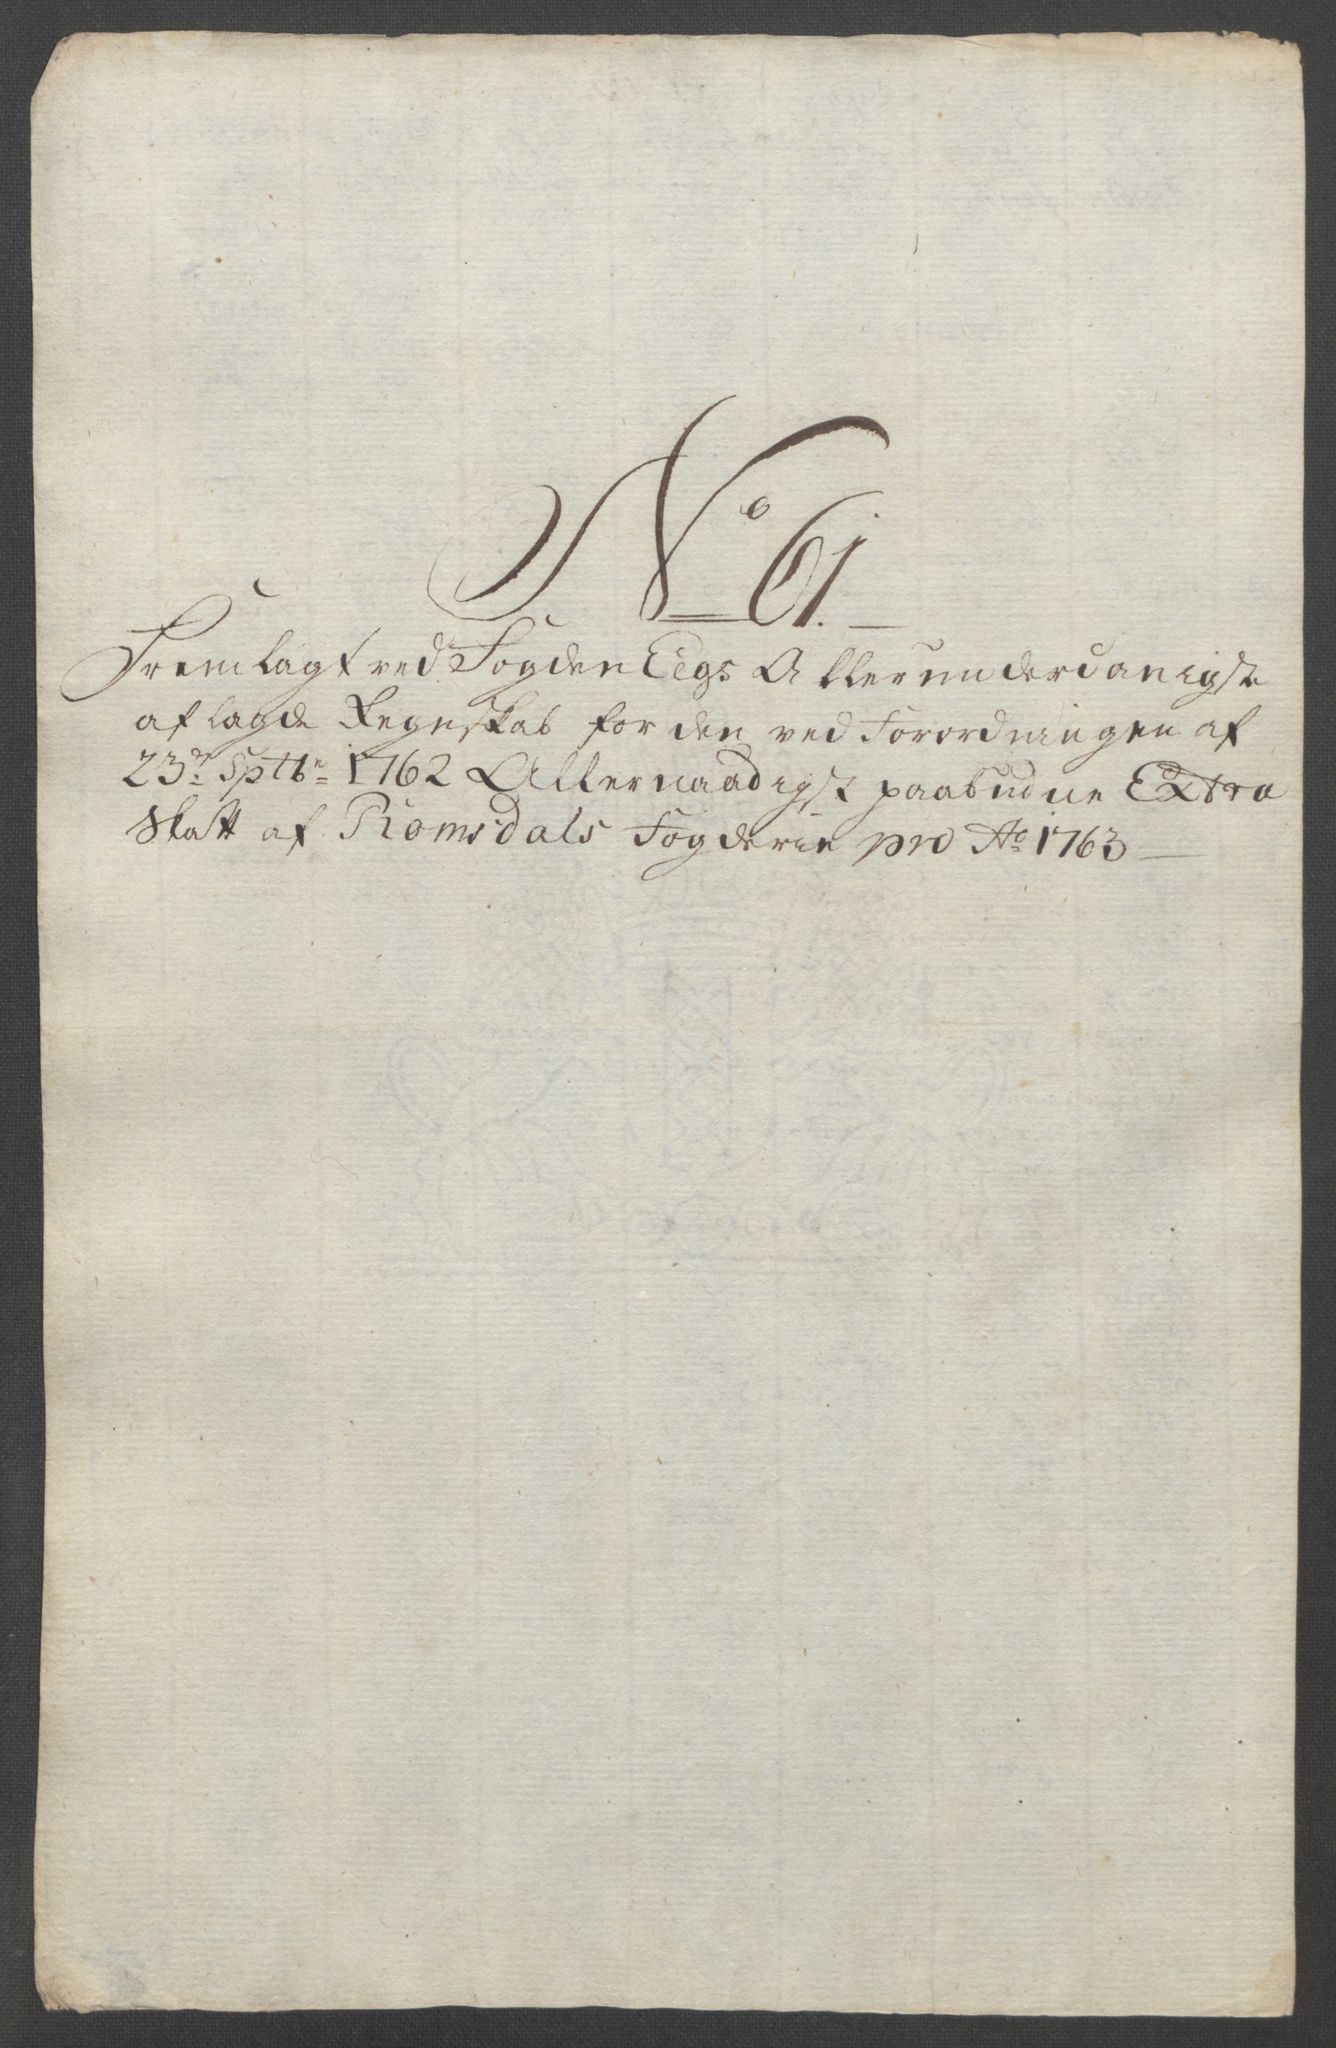 No 61.
Fremlagt ved Fogden Eegs Allerunderdanigst
aflagde Regnskab for den ved Forordningen af
23de Septbr 1762 Allernaadigst paabudne Extra
Skatt af Romsdals Fogderie pro Ao 1763